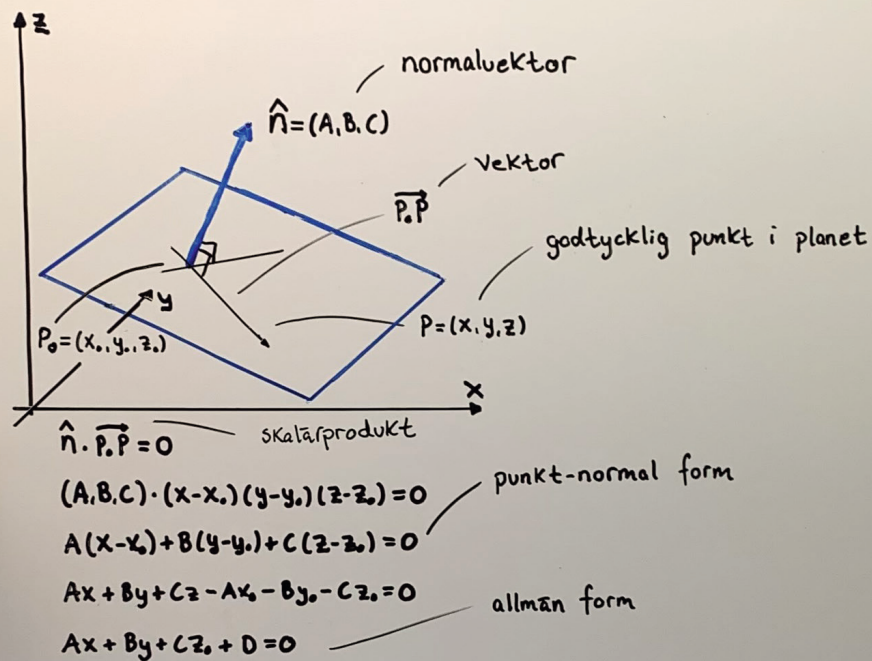 z
normalvektor
n̂=(A,B,C)
vektor
P₀P
godtycklig punkt i planet
y
P₀=(x₀,y₀,z₀)
P=(x,y,z)
x
n̂·P₀P=0
skalärprodukt
(A,B,C)·(x-x₀)(y-y₀)(z-z₀)=0
punkt-normal form
A(x-x₀)+B(y-y₀)+C(z-z₀)=0
Ax+By+Cz-Ax₀-By₀-Cz₀=0
allmän form
Ax+By+Cz₀+D=0